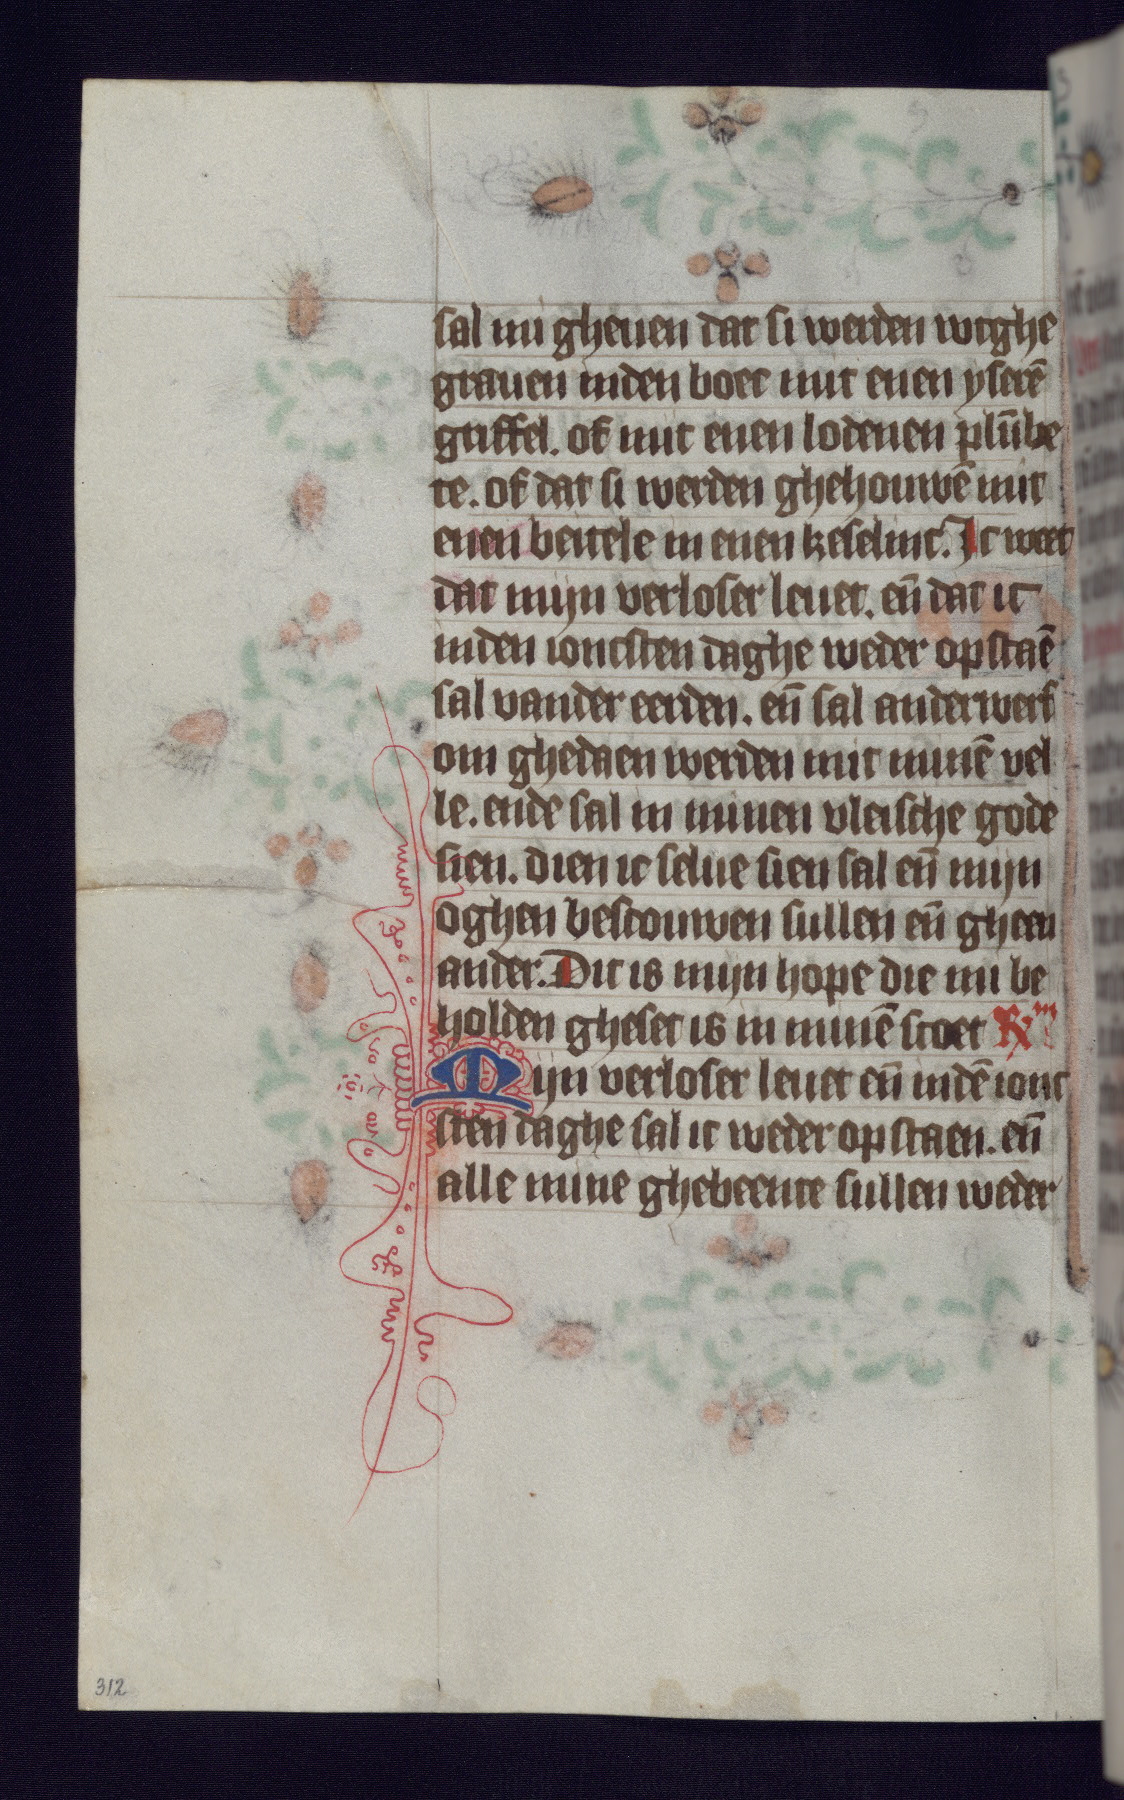 sal mi gheuen dat si werden wtghe
grauen inden boec mit enen yserē
griffel. of mit enen lodenen plūbe
te. of dat si werden ghehouwē mit
enen beitele in enen keselinc. Ic weet
dat mijn verloser leuet. eñ dat ic
inden ioncsten daghe weder opstaē
sal vander eerden. eñ sal anderwerf
om ghedaen werden mit minē vel
le. ende sal in minen vleische gode
sien. dien ic selue sien sal eñ mijn
oghen bescouwen sullen eñ gheen
ander. Dit is mijn hope die mi be
holden gheset is in minē scoet R
Mijn verloser leuet eñ indē ionc
sten daghe sal ic weder opstaen. eñ
alle mine ghebeente sullen weder
312